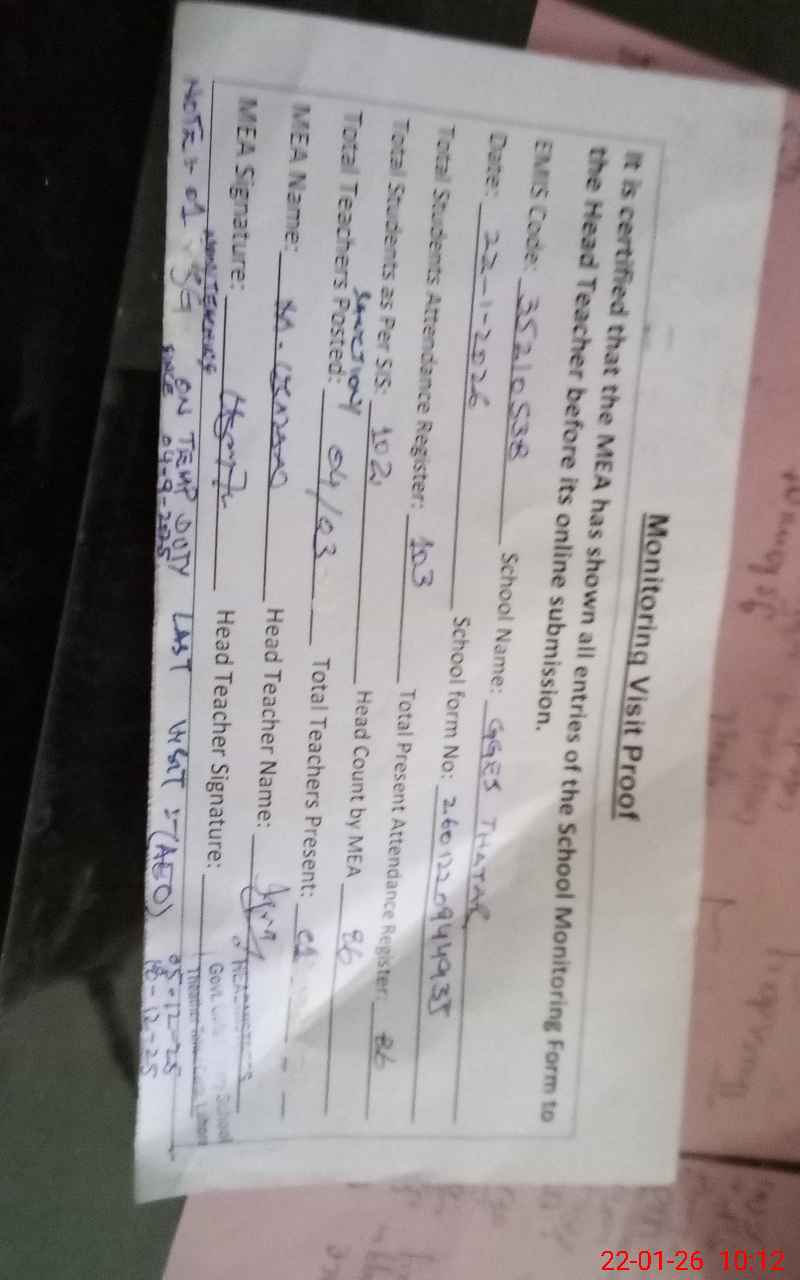 Monitoring Visit Proof
It is certified that the MEA has shown all entries of the School Monitoring Form to
the Head Teacher before its online submission.
EMIS Code: 35210538 School Name: GGES THATAR
Date: 22-1-2026 School form No: 260122094493
Total Students Attendance Register: 103 Total Present Attendance Register: 86
Total Students as Per SIS: 102 Head Count by MEA 86
SANCTION
Total Teachers Posted: 04/03 Total Teachers Present: 01
MEA Name: M. Head Teacher Name:
MEA Signature: Head Teacher Signature:
HEADMISTRESS
Govt. School
Lahore
NON TEACHING
NOTE:- 01 ON TEMP DUTY LAST VISIT :- (AEO) 05-12-25
SINCE 04-9-2025 18-12-25
22-01-26 10:12